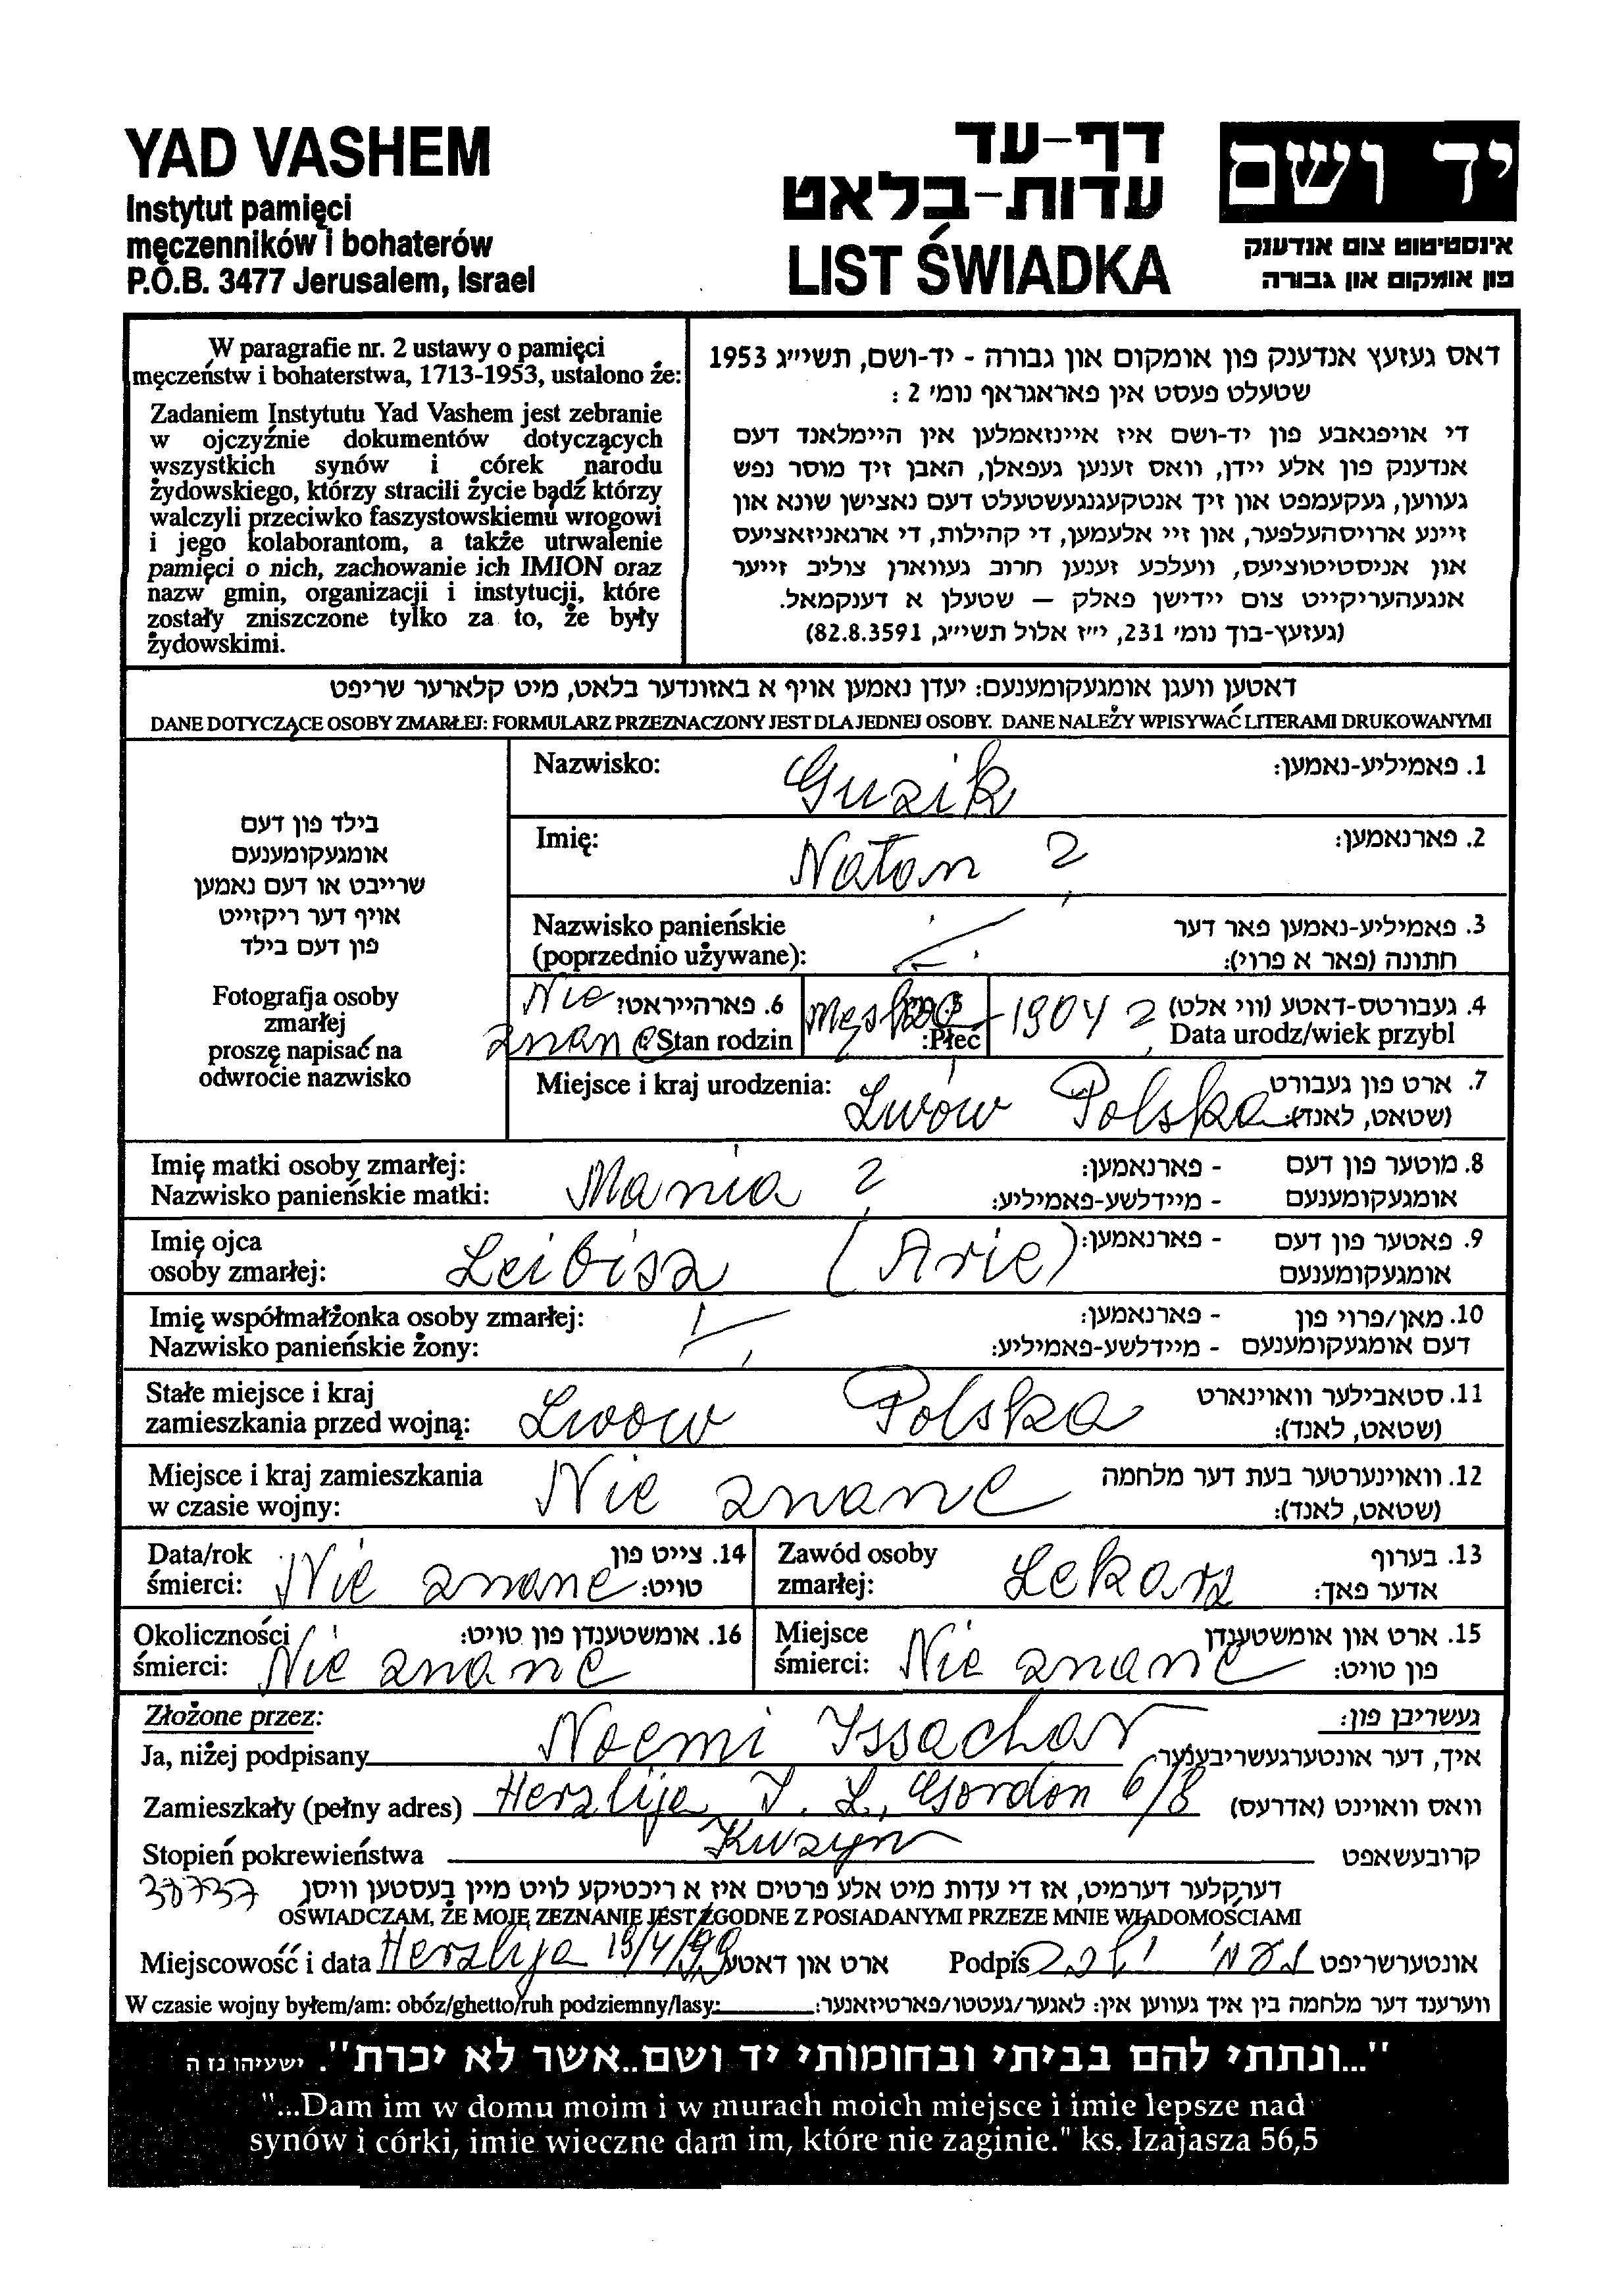 YAD VASHEM
Instytut pamięci
męczenników i bohaterów
P.O.B. 3477 Jerusalem, Israel
דף-עד
עדות-בלאט
LIST ŚWIADKA
יד ושם
אינסטיטוט צום אנדענק
פון אומקום און גבורה
W paragrafie nr. 2 ustawy o pamięci
męczeństw i bohaterstwa, 1713-1953, ustalono że:
Zadaniem Instytutu Yad Vashem jest zebranie
w ojczyźnie dokumentów dotyczących
wszystkich synów i córek narodu
żydowskiego, którzy stracili życie bądź którzy
walczyli przeciwko faszystowskiemu wrogowi
i jego kolaborantom, a także utrwalenie
pamięci o nich, zachowanie ich IMION oraz
nazw gmin, organizacji i instytucji, które
zostały zniszczone tylko za to, że były
żydowskimi.
דאס געזעץ אנדענק פון אומקום און גבורה - יד-ושם, תשי״ג 1953
שטעלט פעסט אין פאראגראף נומ׳ 2 :
די אויפגאבע פון יד-ושם איז איינזאמלען אין היימלאנד דעם
אנדענק פון אלע יידן, וואס זענען געפאלן, האבן זיך מוסר נפש
געווען, געקעמפט און זיך אנטקעגנגעשטעלט דעם נאצישן שונא און
זיינע ארויסהעלפער, און זיי אלעמען, די קהילות, די ארגאניזאציעס
און אניסטיטוציעס, וועלכע זענען חרוב געווארן צוליב זייער
אנגעהעריקייט צום יידישן פאלק – שטעלן א דענקמאל.
(געזעץ-בוך נומ׳ 231, י״ז אלול תשי״ג, 82.8.3591)
דאטען וועגן אומגעקומענעם: יעדן נאמען אויף א באזונדער בלאט, מיט קלארער שריפט
DANE DOTYCZĄCE OSOBY ZMARŁEJ: FORMULARZ PRZEZNACZONY JEST DLA JEDNEJ OSOBY. DANE NALEŻY WPISYWAĆ LITERAMI DRUKOWANYMI
בילד פון דעם
אומגעקומענעם
שרייבט או דעם נאמען
אויף דער ריקזייט
פון דעם בילד
Fotografja osoby
zmarłej
proszę napisać na
odwrocie nazwisko
Nazwisko: Guzik 1. פאמיליע-נאמען:
Imię: Natan ? 2. פארנאמען:
Nazwisko panieńskie 3. פאמיליע-נאמען פאר דער
(poprzednio używane): חתונה (פאר א פרוי):
Nie 6. פארהייראט? Męska 1904 ? 4. געבורטס-דאטע (ווי אלט)
znane Stan rodzin :Płeć Data urodz/wiek przybl
Miejsce i kraj urodzenia: Lwów Polska 7. ארט פון געבורט
(שטאט, לאנד):
Imię matki osoby zmarłej: Mania ? - פארנאמען: 8. מוטער פון דעם
Nazwisko panieńskie matki: - מיידלשע-פאמיליע: אומגעקומענעם
Imię ojca Leibisz (Arie) - פארנאמען: 9. פאטער פון דעם
osoby zmarłej: אומגעקומענעם
Imię współmałżonka osoby zmarłej: - פארנאמען: 10. מאן/פרוי פון
Nazwisko panieńskie żony: - מיידלשע-פאמיליע: דעם אומגעקומענעם
Stałe miejsce i kraj 11. סטאבילער וואוינארט
zamieszkania przed wojną: Lwow Polska (שטאט, לאנד):
Miejsce i kraj zamieszkania Nie znane 12. וואוינערטער בעת דער מלחמה
w czasie wojny: (שטאט, לאנד):
Data/rok 14. צייט פון Zawód osoby 13. בערוף
śmierci: Nie znane טויט: zmarłej: Lekarz אדער פאך:
Okoliczności 16. אומשטענדן פון טויט: Miejsce 15. ארט און אומשטענדן
śmierci: Nie znane śmierci: Nie znane פון טויט:
Złożone przez: געשריבן פון:
Ja, niżej podpisany Noemi Issachar איך, דער אונטערגעשריבענער
Zamieszkały (pełny adres) Herzlija J. L. Gordon 6/8 וואס וואוינט (אדרעס)
Stopień pokrewieństwa Kuzyn קרובעשאפט
דערקלער דערמיט, אז די עדות מיט אלע פרטים איז א ריכטיקע לויט מיין בעסטען וויסן
OŚWIADCZAM, ŻE MOJE ZEZNANIE JEST ZGODNE Z POSIADANYMI PRZEZE MNIE WIADOMOŚCIAMI
Miejscowość i data Herzlija 19/4/99 ארט און דאטע Podpis אונטערשריפט
W czasie wojny byłem/am: obóz/ghetto/ruh podziemny/lasy: ווערענד דער מלחמה בין איך געווען אין: לאגער/געטטו/פארטיזאנער:
"...ונתתי להם בביתי ובחומותי יד ושם..אשר לא יכרת". ישעיהו נז ה
"...Dam im w domu moim i w murach moich miejsce i imie lepsze nad
synów i córki, imie wieczne dam im, które nie zaginie." ks. Izajasza 56,5